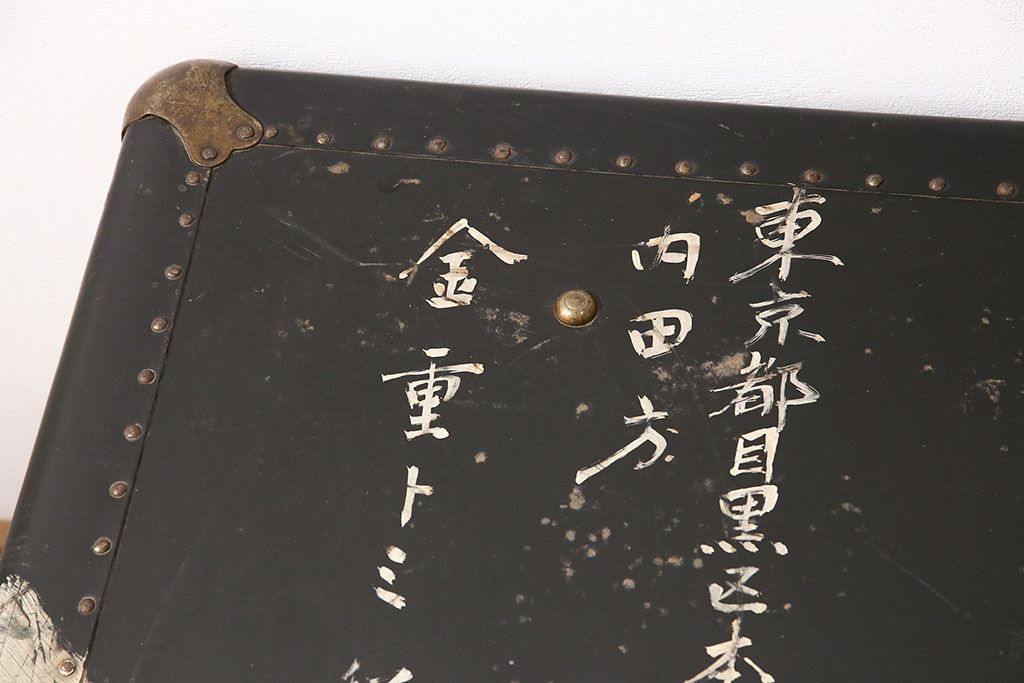 東京都目黒区本
内田方
金重トミ